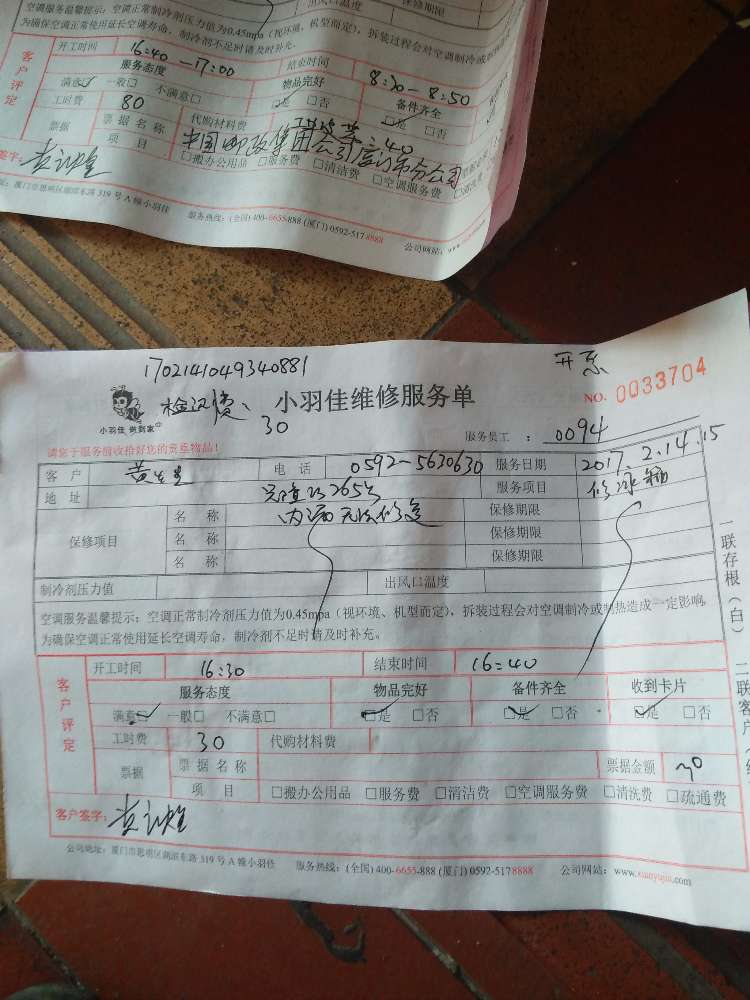 保修期限
出风口温度
空调服务温馨提示：空调正常制冷剂压力值为0.45mpa（视环境、机型而定），拆装过程会对空调制冷或
为确保空调正常使用延长空调寿命，制冷剂不足时请及时补充。
开工时间 16:40-17:00 结束时间 8:30-8:50
客户评定 服务态度 物品完好 备件齐全
满意☑ 一般□ 不满意□ ☑是 □否 ☑是 □否
工时费 80 代购材料费
票据 票据名称 中国邮政集团公司厦门市分公司
项目 □搬办公用品 □服务费 □清洁费 □空调服务费
签字：
厦门市思明区湖滨东路319号A幢小羽佳 服务热线：(全国)400-6655-888 (厦门)0592-5178888 公司网站：www.
1702141049340881
检测费、30
小羽佳维修服务单
NO. 0033704
小羽佳 做到家
服务员工： 0094
请您于服务前收拾好您的贵重物品！
客户 黄先生 电话 0592-5630630 服务日期 2017.2.14.15
地址 265号 服务项目 修冰箱
保修项目 名称 内漏无法修复 保修期限
名称 保修期限
名称 保修期限
制冷剂压力值 出风口温度
空调服务温馨提示：空调正常制冷剂压力值为0.45mpa（视环境、机型而定），拆装过程会对空调制冷或制热造成一定影响，
为确保空调正常使用延长空调寿命，制冷剂不足时请及时补充。
开工时间 16:30 结束时间 16:40
客户评定 服务态度 物品完好 备件齐全 收到卡片
满意☑ 一般□ 不满意□ ☑是 □否 ☑是 □否 ☑是 □否
工时费 30 代购材料费
票据 票据名称 票据金额 30
项目 □搬办公用品 □服务费 □清洁费 □空调服务费 □清洗费 □疏通费
客户签字：
公司地址：厦门市思明区湖滨东路319号A幢小羽佳 服务热线：(全国)400-6655-888 (厦门)0592-5178888 公司网站：www.xiaoyujia.com
一联存根（白）
二联客户